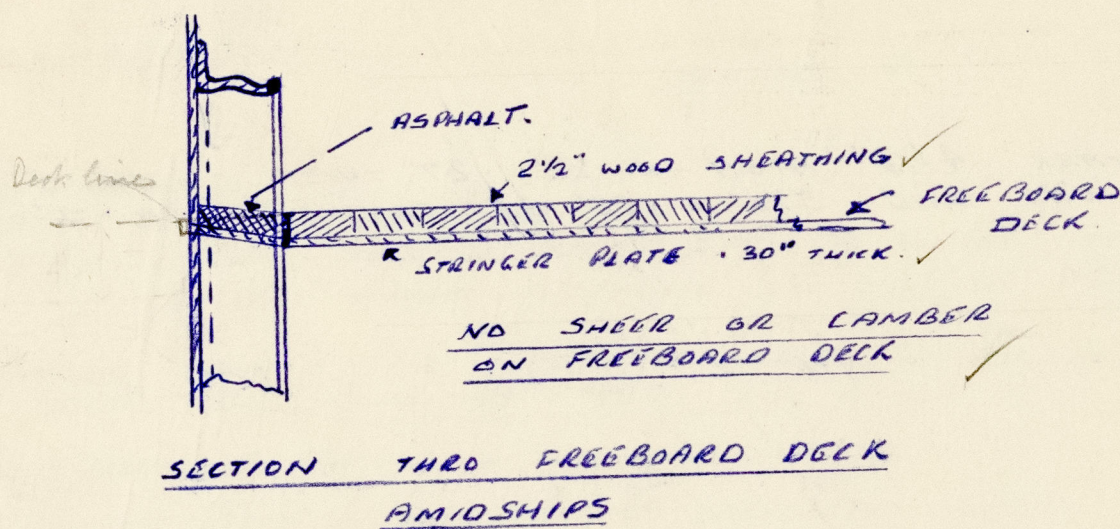 ASPHALT.
2½" WOOD SHEATHING
Deck line
FREEBOARD
DECK.
STRINGER PLATE .30" THICK.
NO SHEER OR CAMBER
ON FREEBOARD DECK
SECTION THRO FREEBOARD DECK
AMIDSHIPS